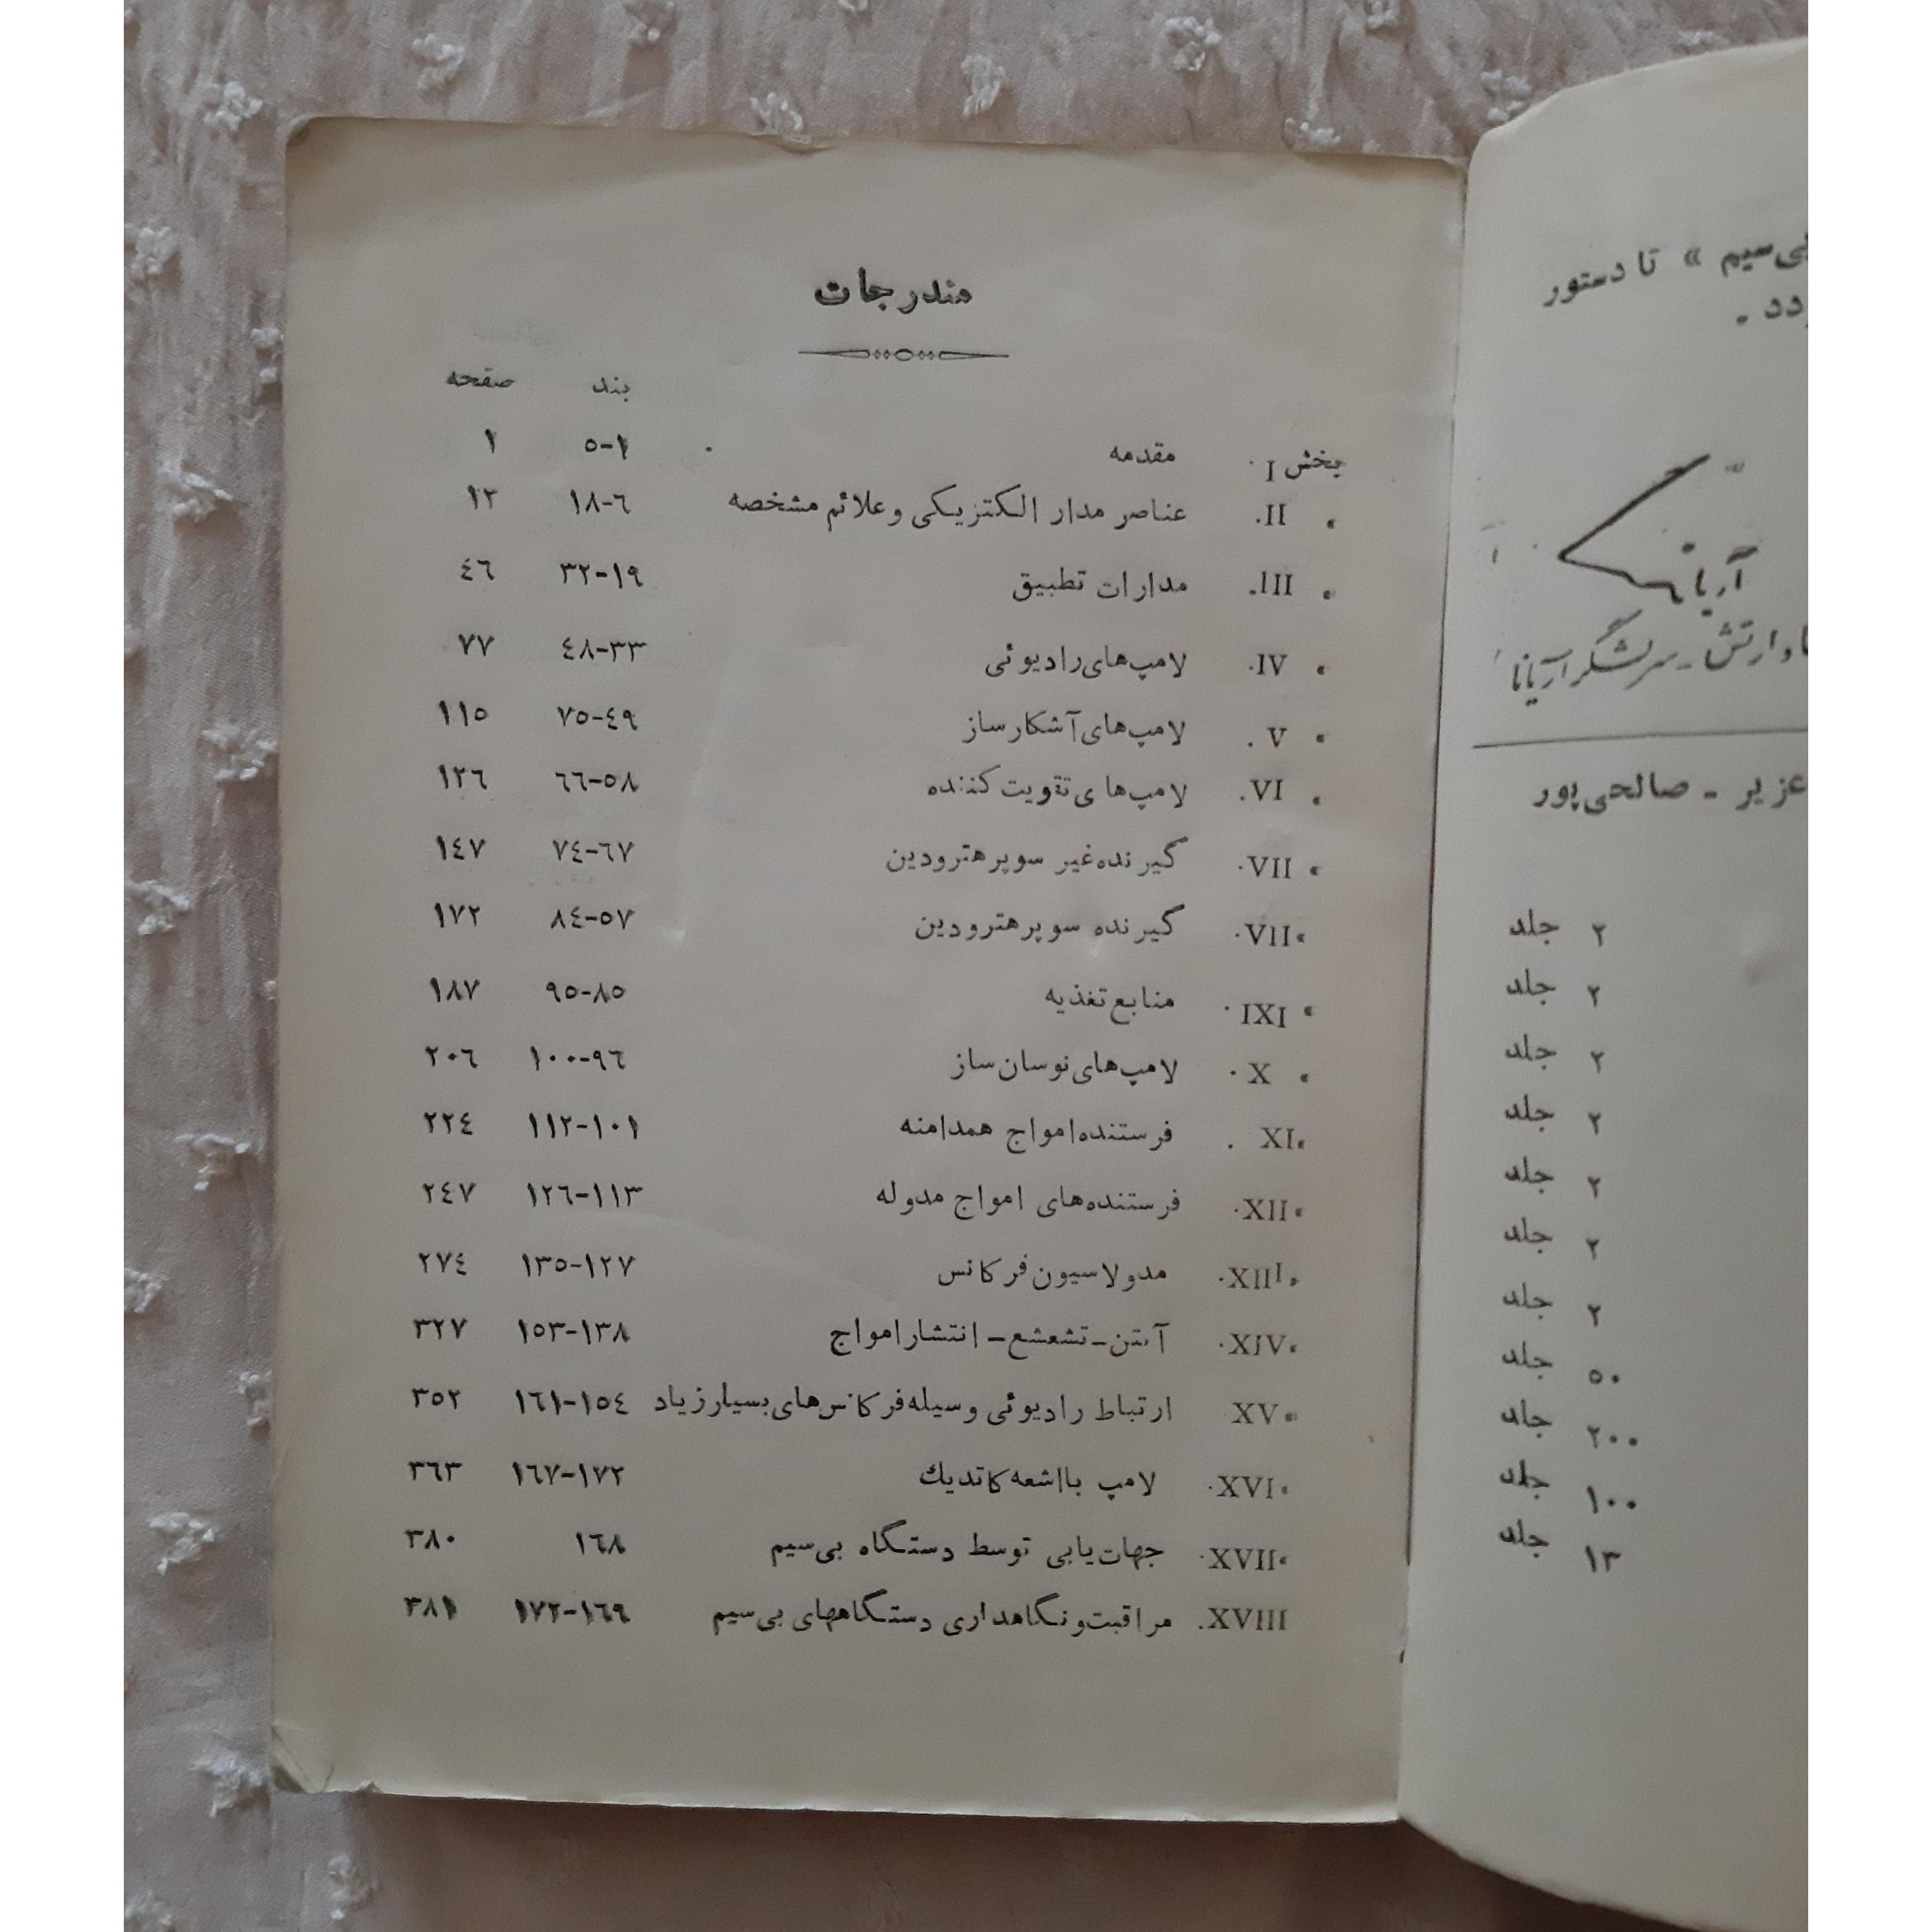 مندرجات
بند صفحه
بخش I. مقدمه ۱-۵ ۱
» II. عناصر مدار الکتریکی و علائم مشخصه ٦-۱۸ ۱۲
» III. مدارات تطبیق ۱۹-۳۲ ٤٦
» IV. لامپ‌های رادیوئی ۳۳-٤۸ ۷۷
» V. لامپ‌های آشکارساز ٤۹-۷۵ ۱۱۵
» VI. لامپ‌های تقویت کننده ۵۸-٦٦ ۱۲٦
» VII. گیرنده غیر سوپر هترودین ٦۷-۷٤ ۱٤۷
» VII. گیرنده سوپر هترودین ۵۷-۸٤ ۱۷۲
» IXI. منابع تغذیه ۸۵-۹۵ ۱۸۷
» X. لامپ‌های نوسان ساز ۹٦-۱۰۰ ۲۰٦
» XI. فرستنده امواج همدامنه ۱۰۱-۱۱۲ ۲۲٤
» XII. فرستنده‌های امواج مدوله ۱۱۳-۱۲٦ ۲٤۷
» XIII. مدولاسیون فرکانس ۱۲۷-۱۳۵ ۲۷٤
» XIV. آنتن - تشعشع - انتشار امواج ۱۳۸-۱۵۳ ۳۲۷
» XV ارتباط رادیوئی وسیله فرکانس‌های بسیار زیاد ۱۵٤-۱٦۱ ۳۵۲
» XVI. لامپ با اشعه کاتدیك ۱۷۲-۱٦۷ ۳٦۳
» XVII. جهت‌یابی توسط دستگاه بی‌سیم ۱٦۸ ۳۸۰
XVIII. مراقبت و نگاهداری دستگاههای بی‌سیم ۱٦۹-۱۷۲ ۳۸۱
بی‌سیم » تا دستور
آریانا
ارتش - سرلشگر آریانا
عزیر - صالحی‌پور
۲ جلد
۲ جلد
۲ جلد
۲ جلد
۲ جلد
۲ جلد
۲ جلد
۵۰ جلد
۲۰۰ جلد
۱۰۰ جلد
۱۳ جلد